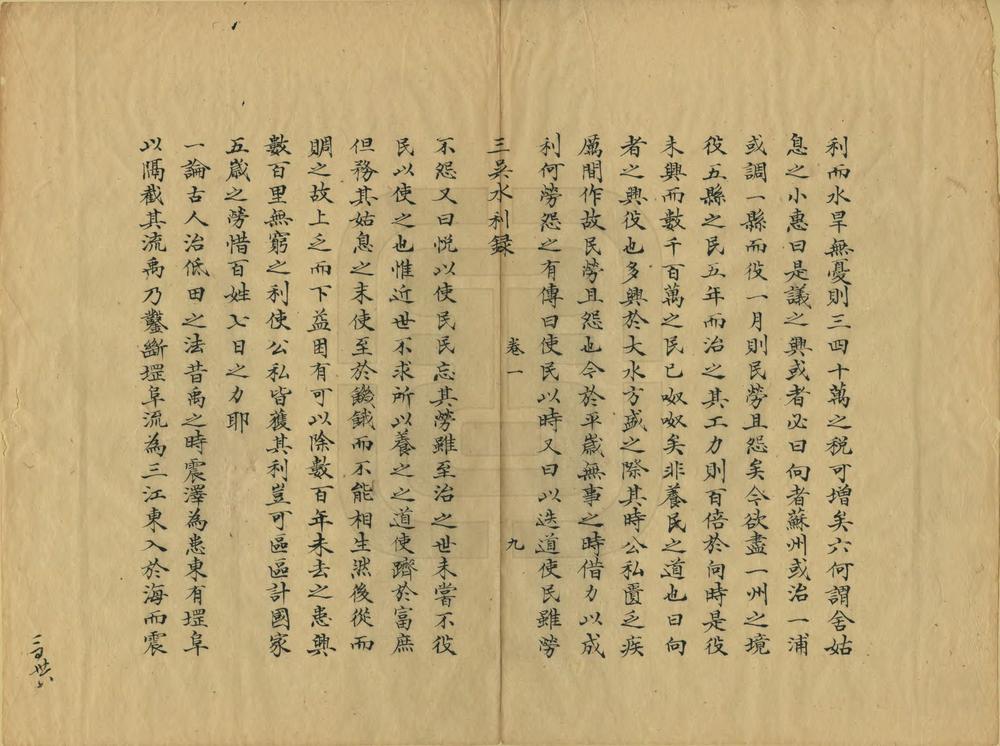 利而水旱無憂則三四十萬之稅可增矣六何謂舍姑
息之小惠曰是議之興或者必曰向者蘇州或治一浦
或調一縣而役一月則民勞且怨矣今欲盡一州之境
役五縣之民五年而治之其工力則百倍於向時是役
未興而數千百萬之民已呶呶矣非養民之道也曰向
者之興役也多興於大水方盛之際其時公私匱乏疾
厲間作故民勞且怨也今於平歲無事之時借力以成
利何勞怨之有傳曰使民以時又曰以迭道使民雖勞
三吳水利録
卷一
九
不怨又曰悅以使民民忘其勞雖至治之世未嘗不役
民以使之也惟近世不求所以養之之道使躋於富庶
但務其姑息之末使至於饑餓而不能相生然後從而
賙之故上乏而下益困有可以除數百年未去之患興
數百里無窮之利使公私皆獲其利豈可區區計國家
五歲之勞惜百姓七日之力耶
一論古人治低田之法昔禹之時震澤為患東有堽阜
以隔截其流禹乃鑿斷堽阜流為三江東入於海而震